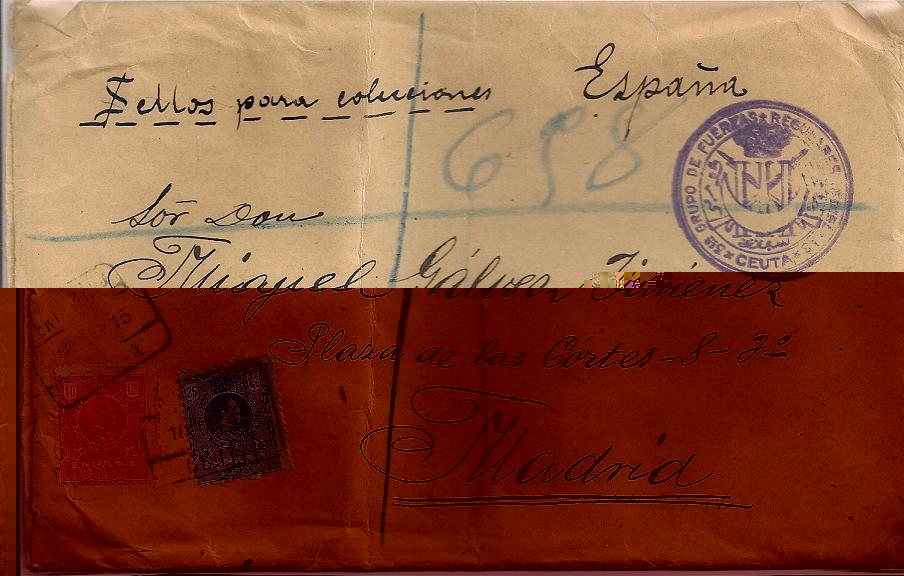 España
Sellos para colecciones
658
GRUPO DE FUERZAS REGULARES
CEUTA
Sōr Don
Miguel Gálvez Jiménez
Plaza de las Córtes-8-2º
Madrid
15
10
25